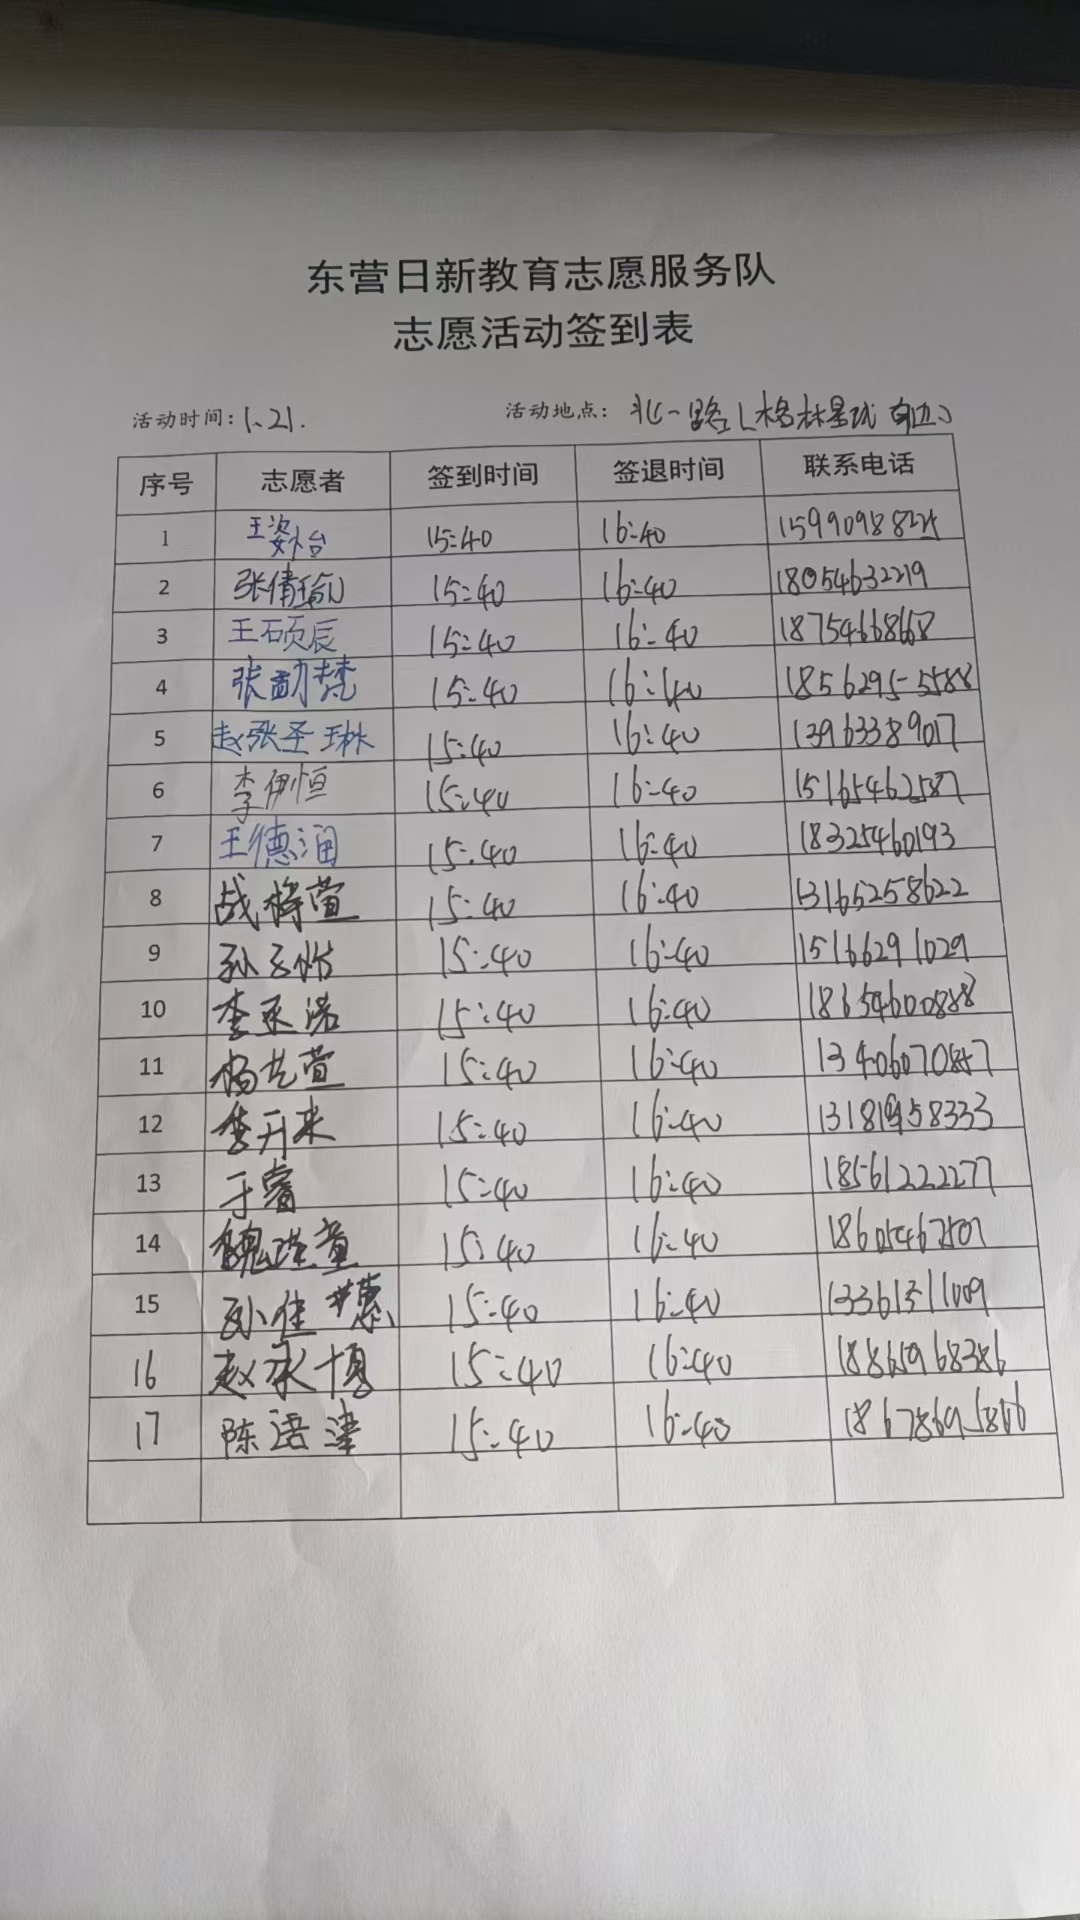 东营日新教育志愿服务队
志愿活动签到表
活动时间：1.21. 活动地点：北一路(格林星城 南边)
序号 志愿者 签到时间 签退时间 联系电话
1 王姿怡 15:40 16:40
2 张倩瑜 15:40 16:40 18054632219
3 王硕辰 15:40 16:40 18754668668
4 15:40 16:40 18562955588
5 赵张圣琳 15:40 16:40 13963389017
6 李伊恒 15:40 16:40 15165462587
7 王德润 15:40 16:40 18325460193
8 战梓萱 15:40 16:40 13165258622
9 孙云怡 15:40 16:40 15166291029
10 李承浩 15:40 16:40 18654600888
11 杨艺萱 15:40 16:40 13406070847
12 李开来 15:40 16:40 13181958333
13 于睿 15:40 16:40 18561222277
14 15:40 16:40
15 孙佳慧 15:40 16:40 13361511009
16 赵承博 15:40 16:40 18865968386
17 陈语津 15:40 16:40